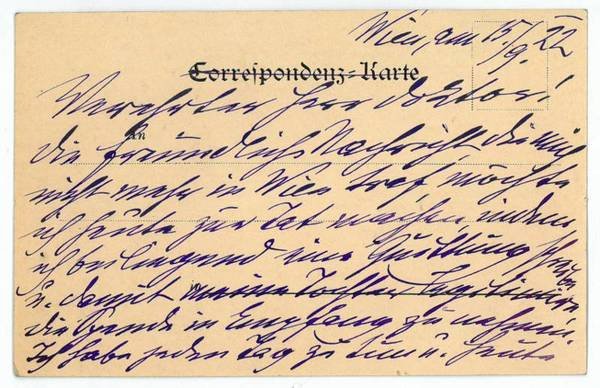 Wien, am 15/9. 22
Correspondenz-Karte
Verehrter Herr Doktor!
An
die freundliche Nachricht, die mich
nicht mehr in Wien traf, möchte
ich heute zur Tat machen, indem
ich beiliegend eine Quittung
u. damit meine Tochter
die Spende in Empfang zu nehmen.
Ich habe jeden Tag zu tun u. heute